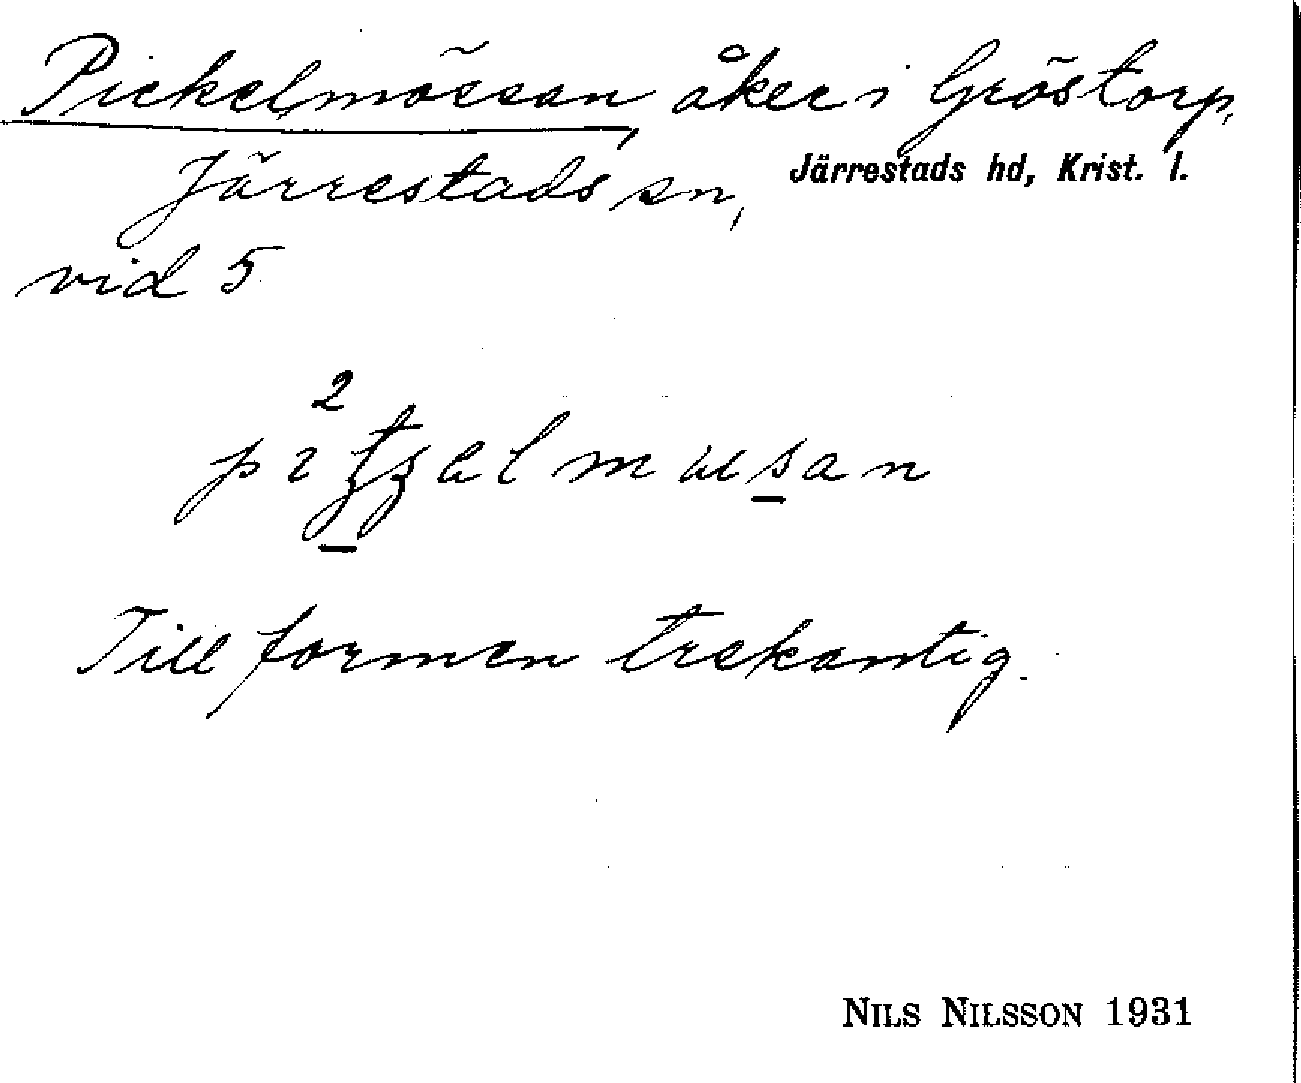 Pickelmössan, åker i Gröstorp,
Järrestads sn, Järrestads hd, Krist. l.
vid 5
Till formen trekantig.
NILS NILSSON 1931